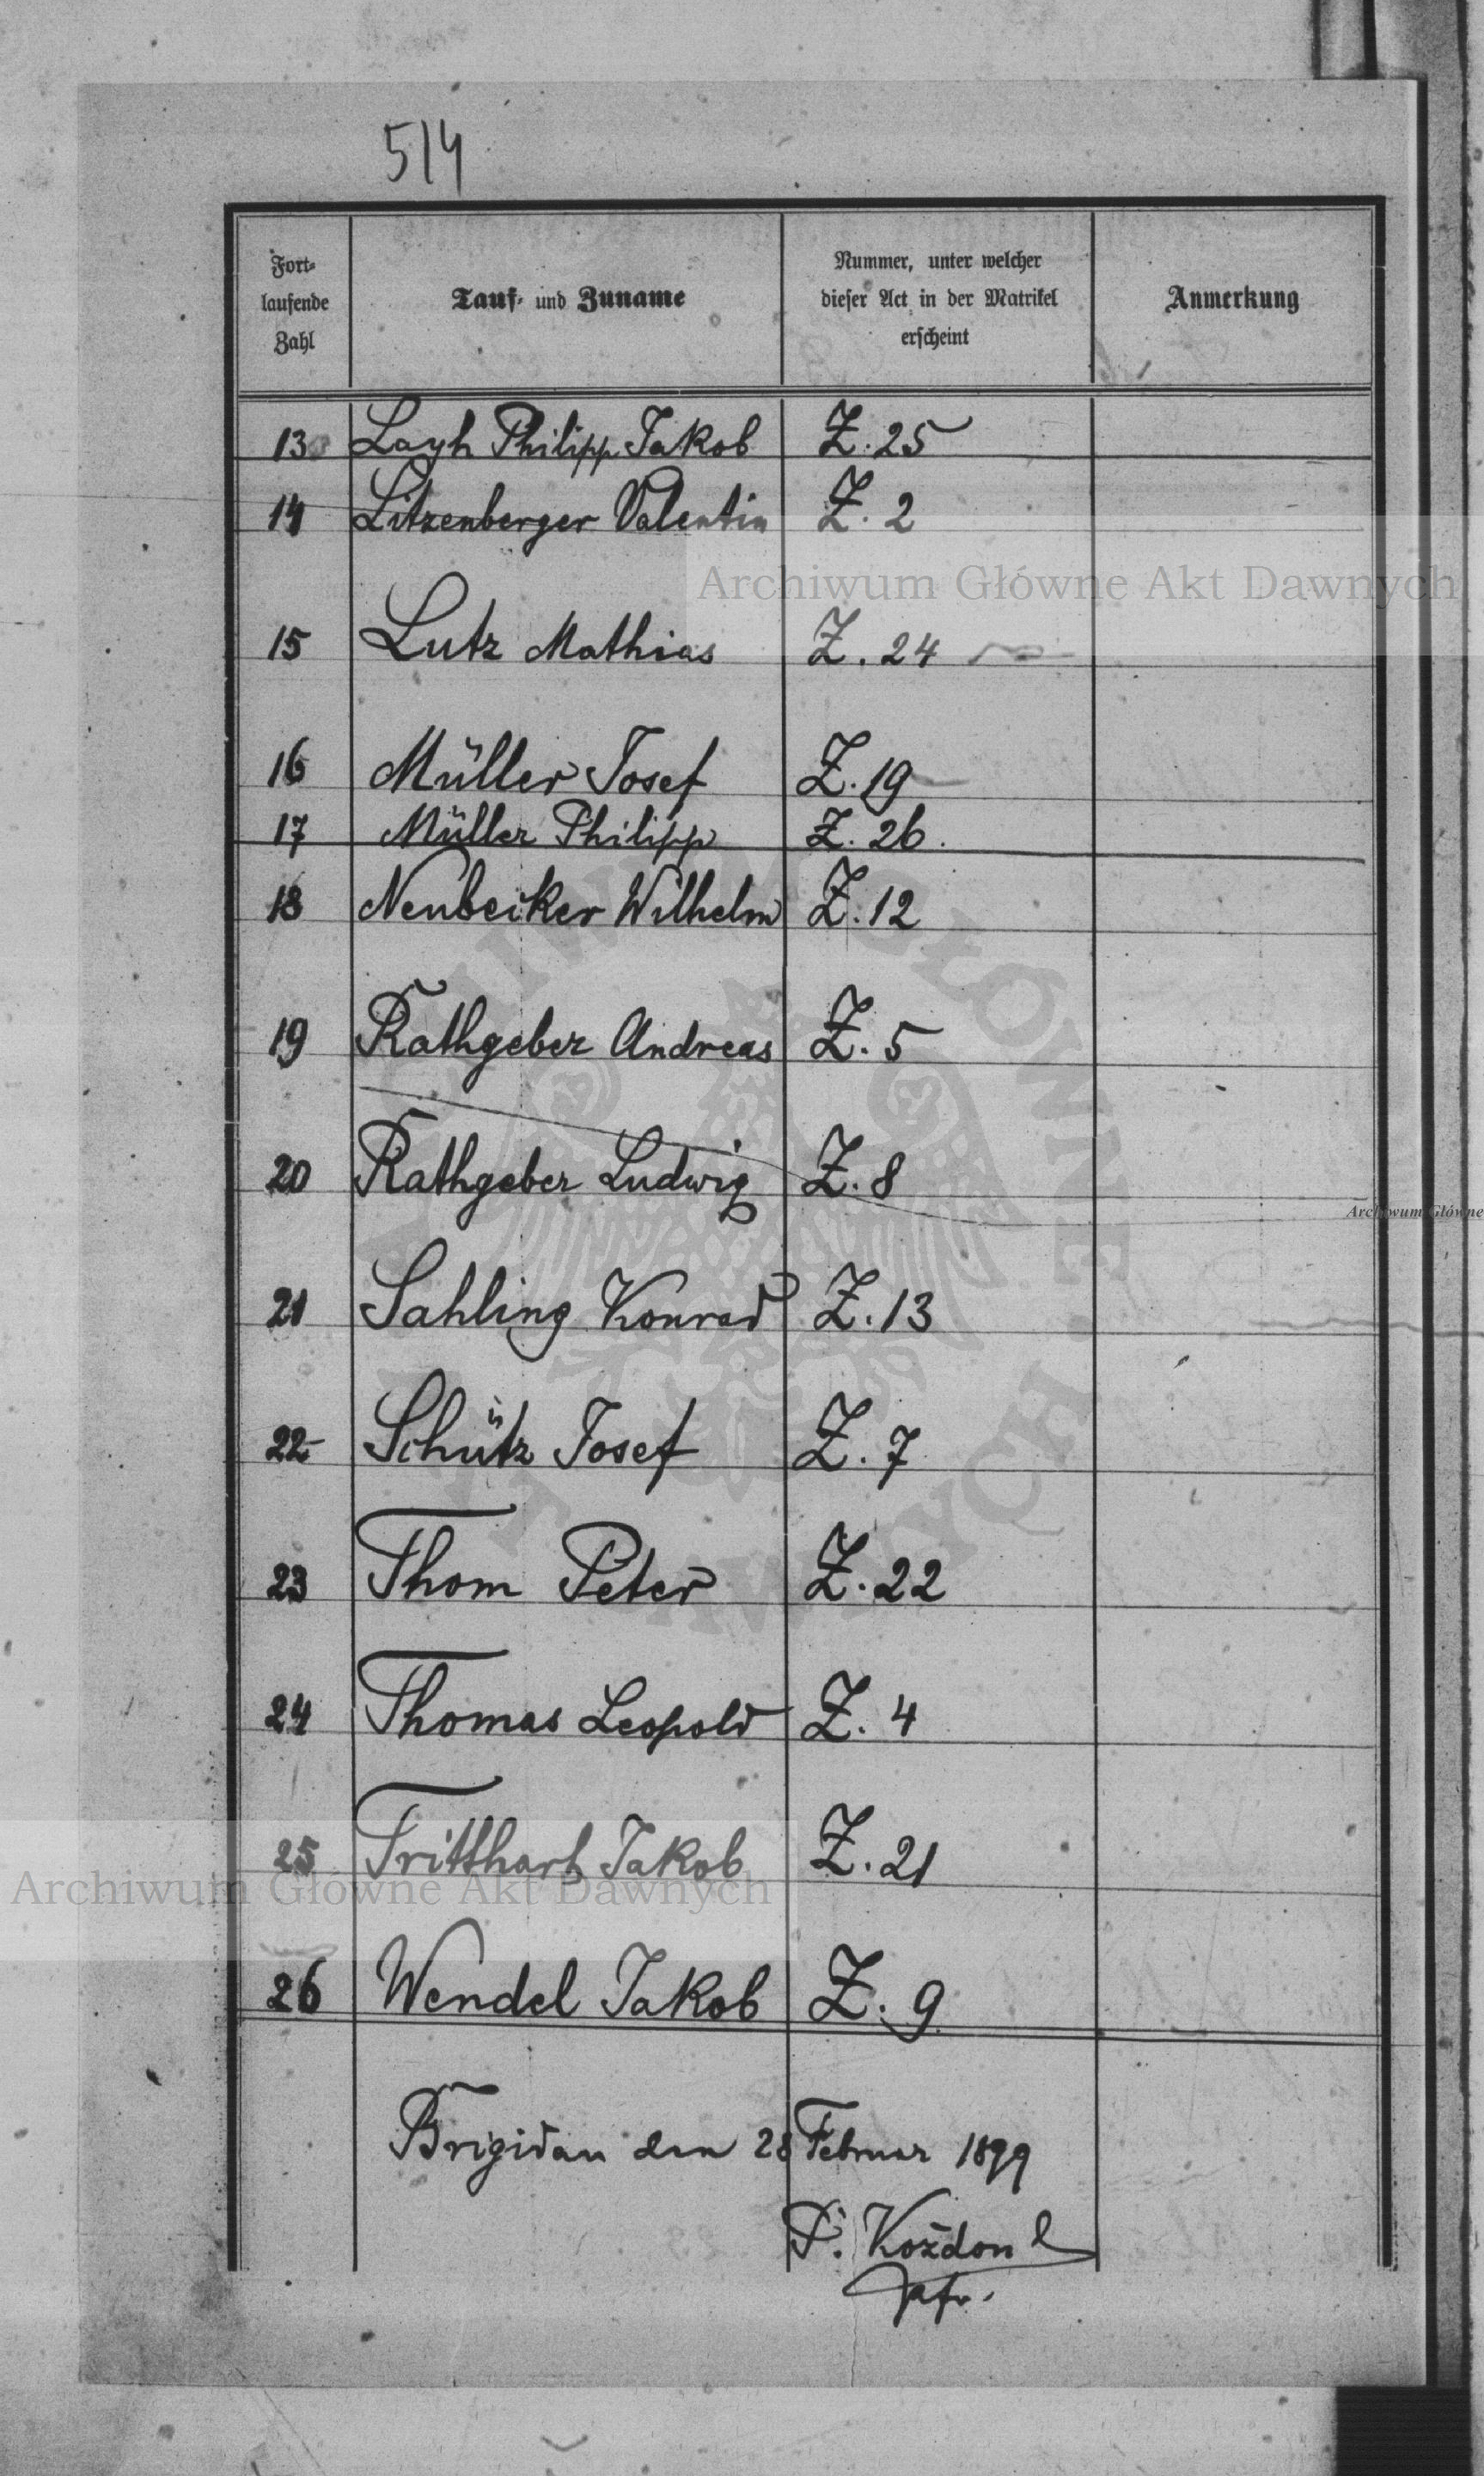 514
Fort-
laufende
Zahl
Tauf- und Zuname
Nummer, unter welcher
dieser Act in der Matrikel
erscheint
Anmerkung
13 Layh Philipp Jakob Z. 25
14 Litzenberger Valentin Z. 2
15 Lutz Mathias Z. 24
16 Müller Josef Z. 19
17 Müller Philipp Z. 26.
18 Neubeiker Wilhelm Z. 12
19 Rathgeber Andreas Z. 5
20 Rathgeber Ludwig Z. 8
21 Sahling Konrad Z. 13
22 Schütz Josef Z. 7
23 Thom Peter Z. 22
24 Thomas Leopold Z. 4
25 Tritthart Jakob Z. 21
26 Wendel Jakob Z. 9
Brigidau den 28 Februar 1899
Kożdon
Archiwum Główne Akt Dawnych
Archiwum Główne Akt Dawnych
Archiwum Główne